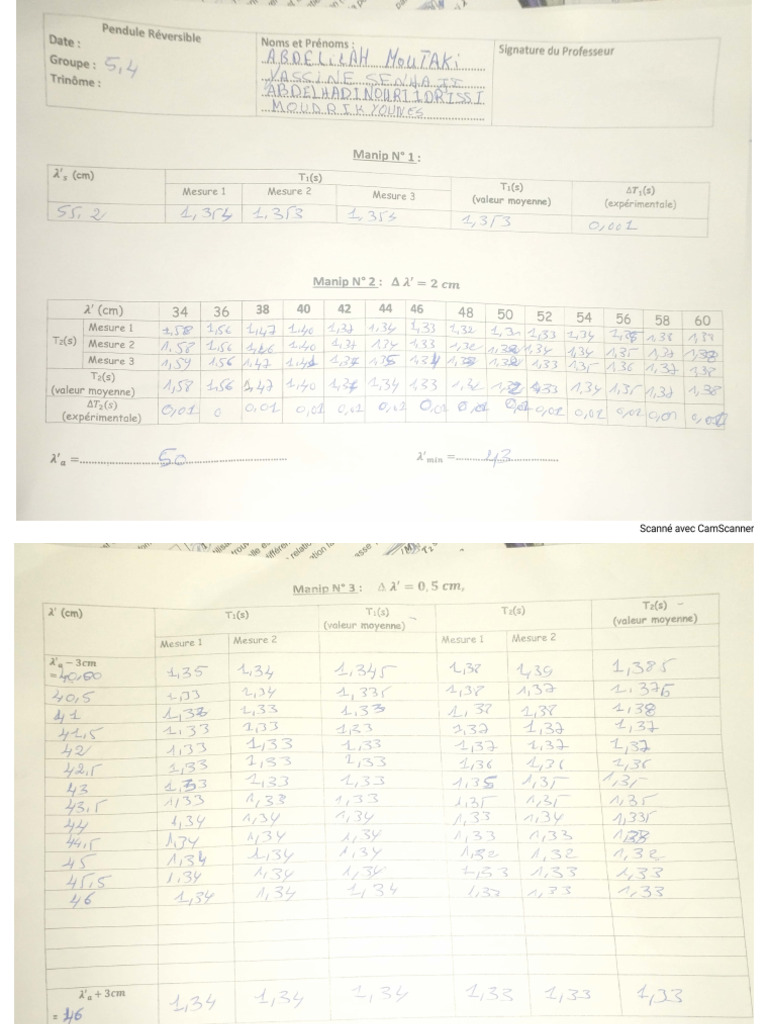 Pendule Réversible
Date :
Groupe : 5,4
Trinôme :
Noms et Prénoms :
ABDELILAH MOUTAKI
YASSINE SENHAJI
ABDELHADI NOURI IDRISSI
MOUDRIK YOUNES
Signature du Professeur
Manip N° 1 :
λ's (cm) T1(s) T1(s) (valeur moyenne) ΔT1(s) (expérimentale)
Mesure 1 Mesure 2 Mesure 3
55,2 1,354 1,353 1,353 1,353 0,001
Manip N° 2 : Δ λ' = 2 cm
λ' (cm) 34 36 38 40 42 44 46 48 50 52 54 56 58 60
T2(s) Mesure 1 1,58 1,56 1,47 1,40 1,37 1,34 1,33 1,32 1,33 1,34 1,38 1,38
Mesure 2 1,58 1,56 1,46 1,40 1,37 1,34 1,33 1,32 1,34 1,34 1,35 1,37
Mesure 3 1,59 1,56 1,47 1,37 1,33 1,35 1,36 1,37 1,38
T2(s) (valeur moyenne) 1,58 1,56 1,47 1,40 1,34 1,33 1,32 1,33 1,34 1,35 1,37 1,38
ΔT2(s) (expérimentale) 0,01 0 0,01 0,01 0,01 0,01 0,01 0,01 0,01 0,01 0,01 0,01 0,01
λ'a = 50
λ'min = 43
Scanné avec CamScanner
Manip N° 3 : Δ λ' = 0,5 cm,
λ' (cm) T1(s) T1(s) (valeur moyenne) T2(s) T2(s) (valeur moyenne)
Mesure 1 Mesure 2 Mesure 1 Mesure 2
λ'a – 3cm
= 40,00 1,35 1,34 1,345 1,38 1,39 1,385
40,5 1,33 1,34 1,335 1,38 1,37 1,375
41 1,33 1,33 1,33 1,38 1,38 1,38
41,5 1,33 1,33 1,33 1,37 1,37 1,37
42 1,33 1,33 1,33 1,37 1,37 1,37
42,5 1,33 1,33 1,33 1,36 1,36 1,36
43 1,33 1,33 1,33 1,35 1,35 1,35
43,5 1,33 1,33 1,33 1,35 1,35 1,35
44 1,34 1,34 1,34 1,33 1,34 1,335
44,5 1,34 1,34 1,34 1,33 1,33 1,33
45 1,34 1,34 1,34 1,32 1,32 1,32
45,5 1,34 1,34 1,34 1,33 1,33 1,33
46 1,34 1,34 1,34 1,33 1,33
λ'a + 3cm
= 46 1,34 1,34 1,34 1,33 1,33 1,33